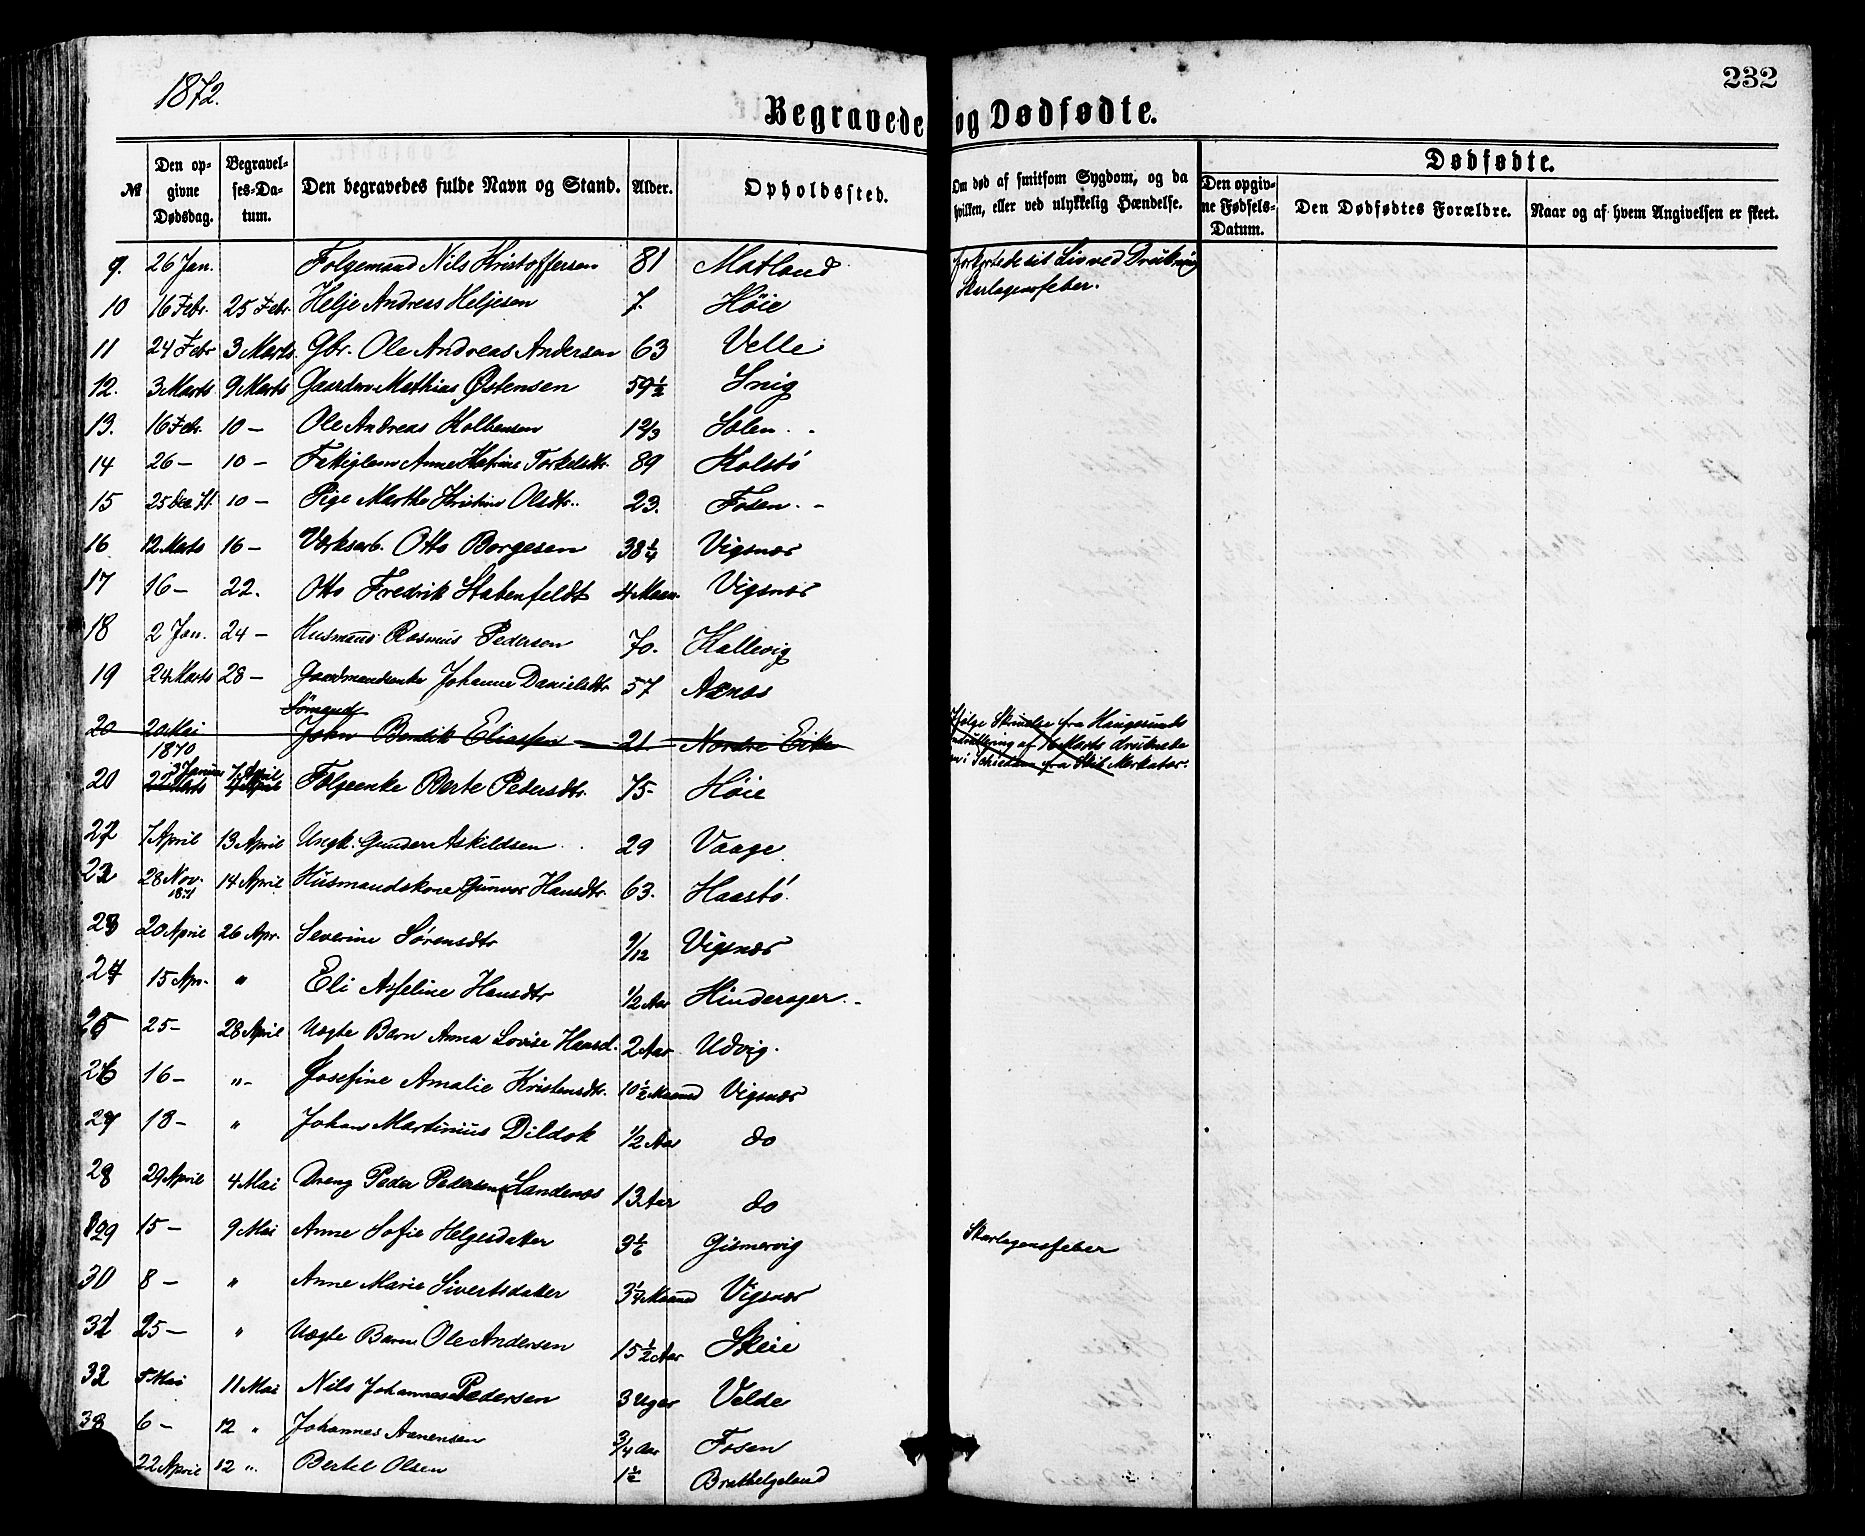 1872.
232
Begravede og Dødfødte.
№
Den opgivne Dødsdag.
Begravelses-Datum.
Den begravedes fulde Navn og Stand.
Alder.
Opholdssted.
Om død af smitsom Sygdom, og da hvilken, eller ved ulykkelig Hændelse.
Dødfødte.
Den opgivne Fødsels-Datum.
Den Dødfødtes Forældre.
Naar og af hvem Angivelsen er skeet.
9. 26 Jan. Folgemand Nils Kristoffersen 81 Matland forkortede sit Liv ved Drukning
10 16 Febr. 25 Febr. Helje Andreas Heljesen 7. Høie Skarlagensfeber.
11 24 Febr 3 Marts. Gbr. Ole Andreas Andersen 63 Velle
12. 3 Marts 9 Marts Mathias Østensen 59½ Snig
13. 16 Feb. 10 — Ole Andreas Kolbensen 1 2/3 Solen
14 26 — 10 — Anne Katrine Torkelsdtr. 89 Kolstö
15 25 Dec 71. 10 — Pige Marthe Kristine Olsdtr. 23. Fosen
16 12 Marts 16 — Værksarb. Otto Borgesen 38¼ Vigsnæs
17 16 — 22. Otto Fredrik Stabenfeldt 4 Maan. Vigsnæs
18 2 Jan. 24 — Husmand Rasmus Pedersen 70. Kallevig
19 24 Marts 28 — Gaardmandsenke Johanne Danielsdtr 57 Axnæs
Sömand
20 20 Mai 1870 John Bendik Eliassen 21 Nordre Eike Ifölge Skrivelse fra Haugesunds
af 16 Marts druknede
i Schiedam fra Skib Merkator.
20 3 Januar 22 Marts 7 April Folgeenke Berte Pedersdtr. 75 Høie
22 7 April 13 April Ungk. Gunder Askildsen 29 Vaage
22 28 Nov. 1871 14 April Husmandskone Gunvor Hansdtr. 63. Haastö
23 20 April 26 Apr. Severine Sörensdtr 9/12 Vigsnæs
24 15 Apr. " Eli Asseline Hansdtr 1/2 Aar Hinderager
25 25 — 28 April Uægte Barn Anna Lovise Hansd. 2 Aar Udvig.
26 16 — " Josefine Amalie Kristensdtr. 10½ Maaned Vigsnæs
27 18 — " Johan Martinius Dildok 1/2 Aar do
28 29 April 4 Mai Dreng Peder Pedersen Sandenæs 13 Aar do
29 15 — 9 Mai Anne Sofie Helgesdatter 3 1/6 Gismervig Skarlagensfeber
30 8 — " Anne Marie Sivertsdatter 3¼ Maaned Vigsnæs
31 25 — " Uægte Barn Ole Andersen 15½ Aar Skeie
32 5 Mai 11 Mai Nils Johannes Pedersen 3 Uger Velde
33 6 — 12 " Johannes Aanensen 3/4 Aar Fosen
22 April 12 " Bertel Olsen 1½ Brathelgeland